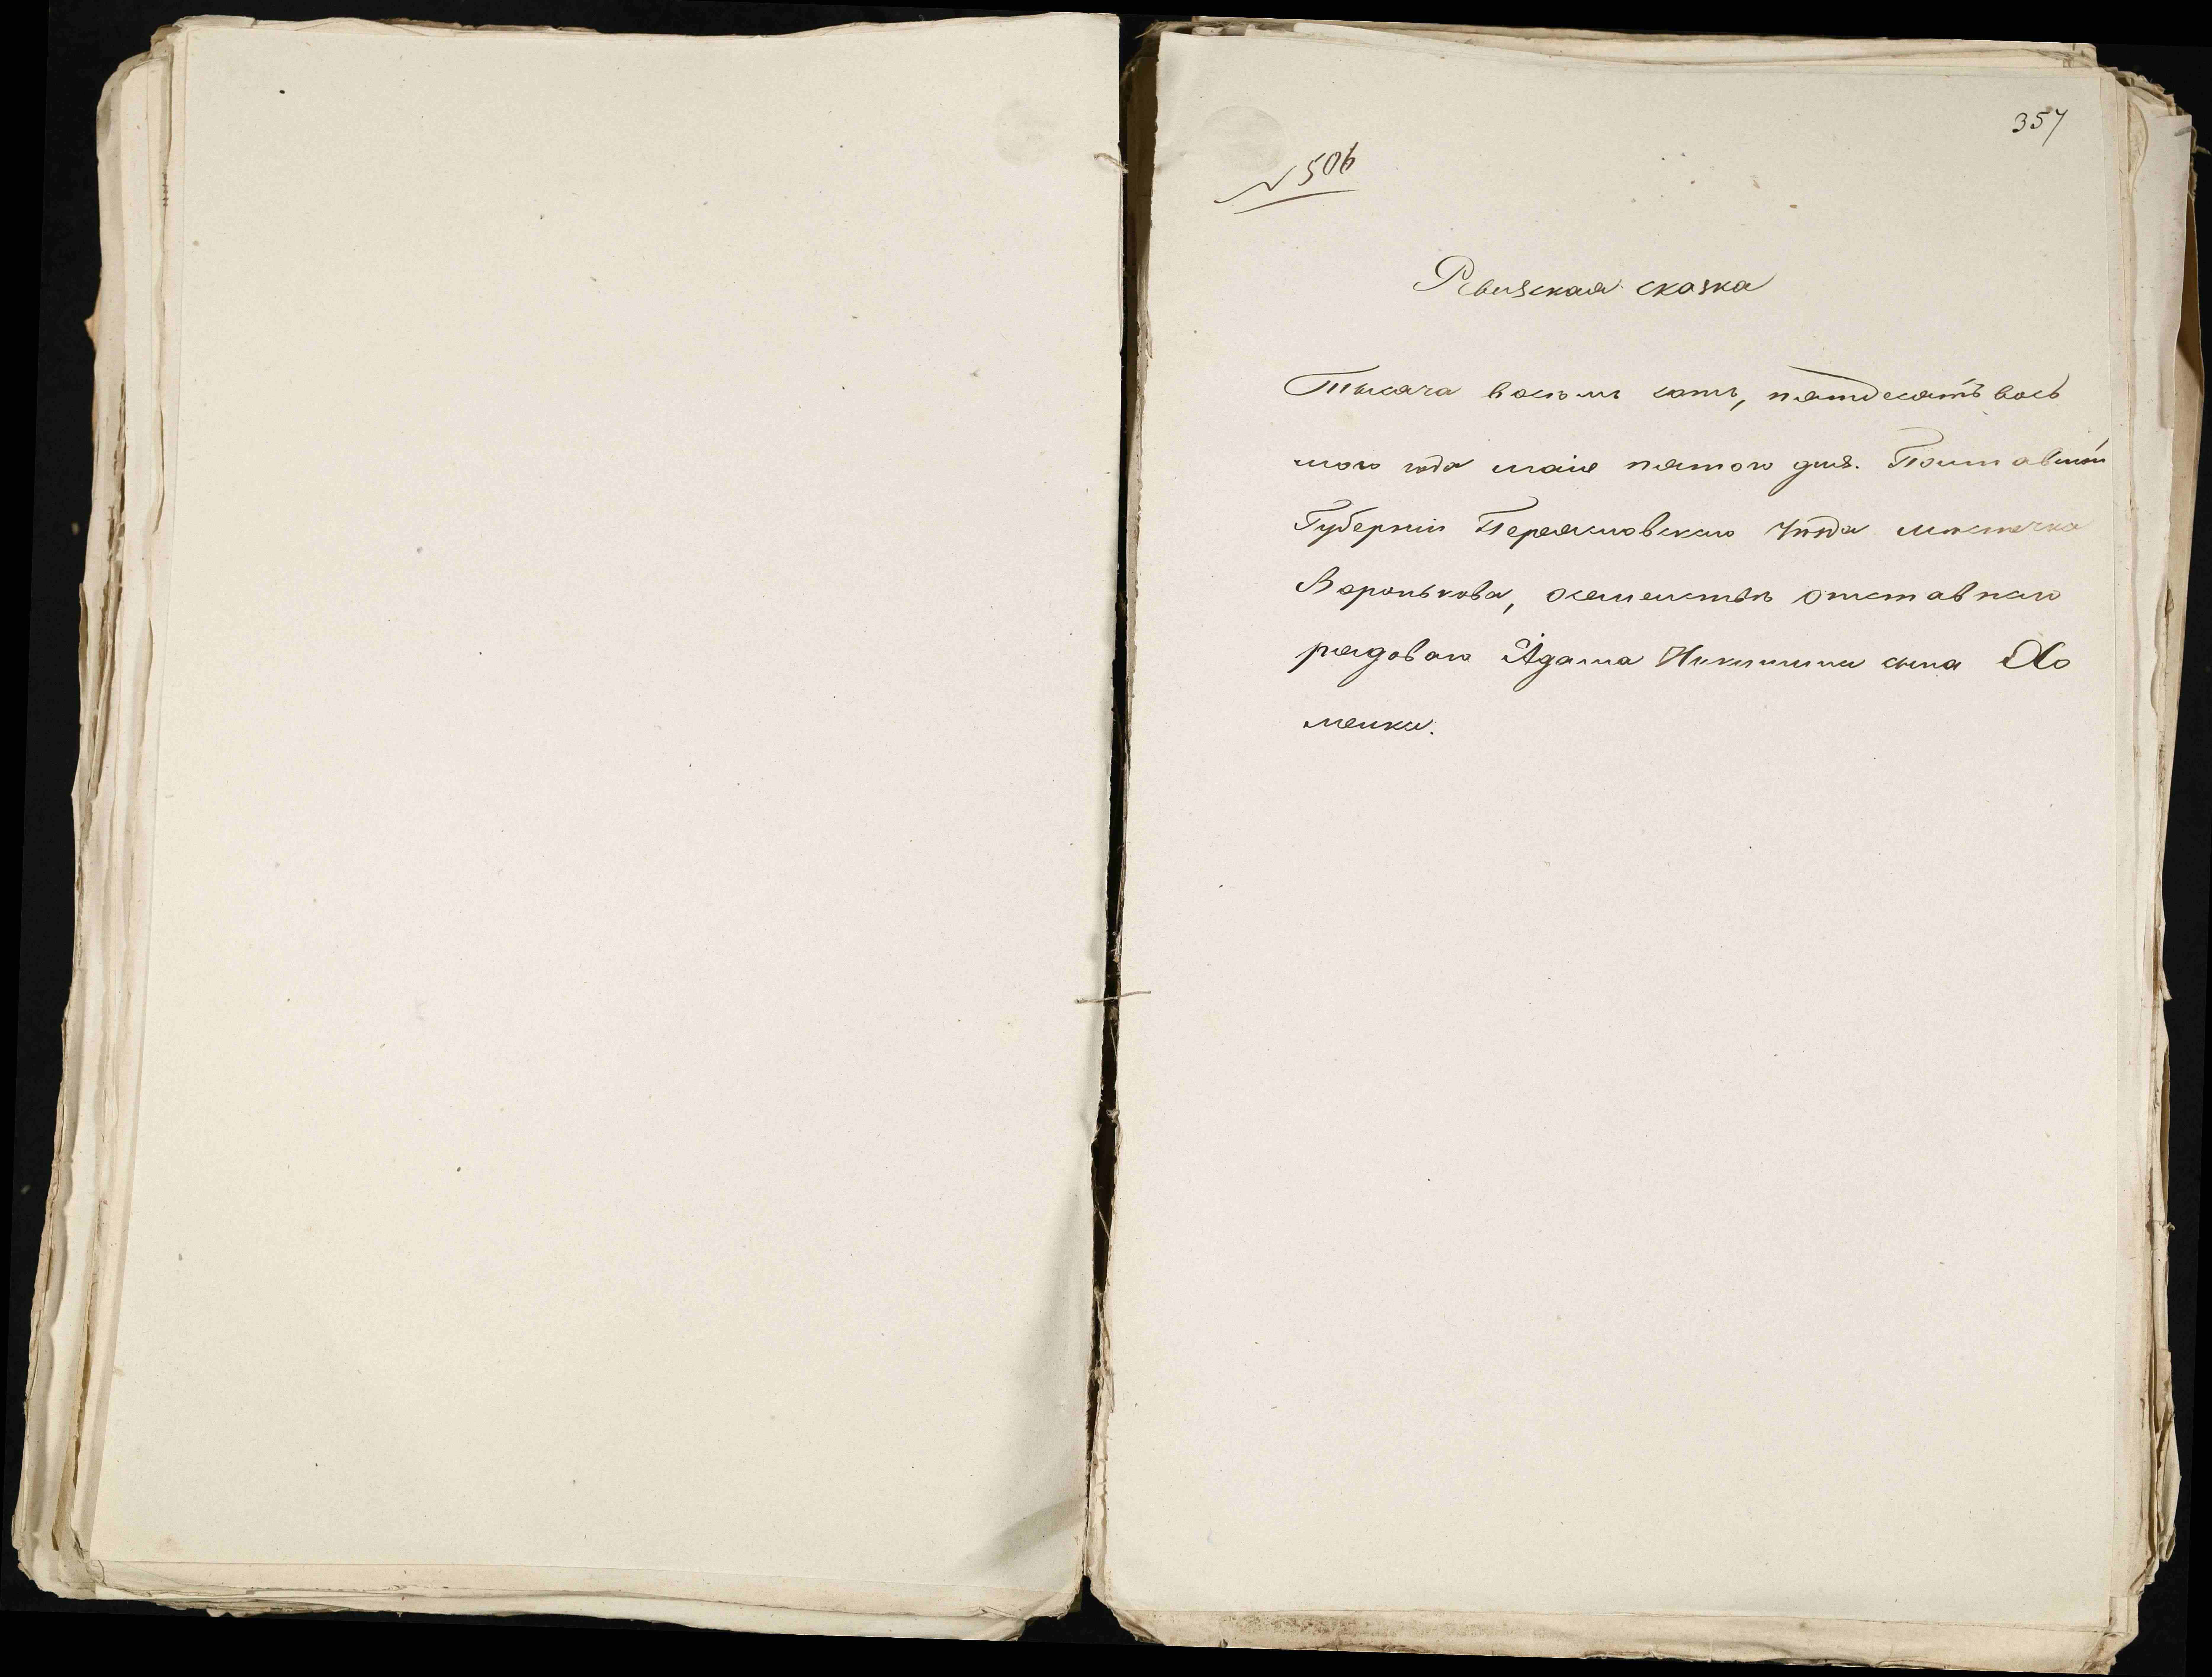 357
№ 506
Ревизская сказка
Тысяча восемь сотъ, пятдесятъ вось
мого года маія пятого дня. Полтавской
Губерніи Переясловского Уѣзда мѣстечка
Воронькова, осемействѣ отставнаго
рядоваго Адама Никитина сына Хо
менки.